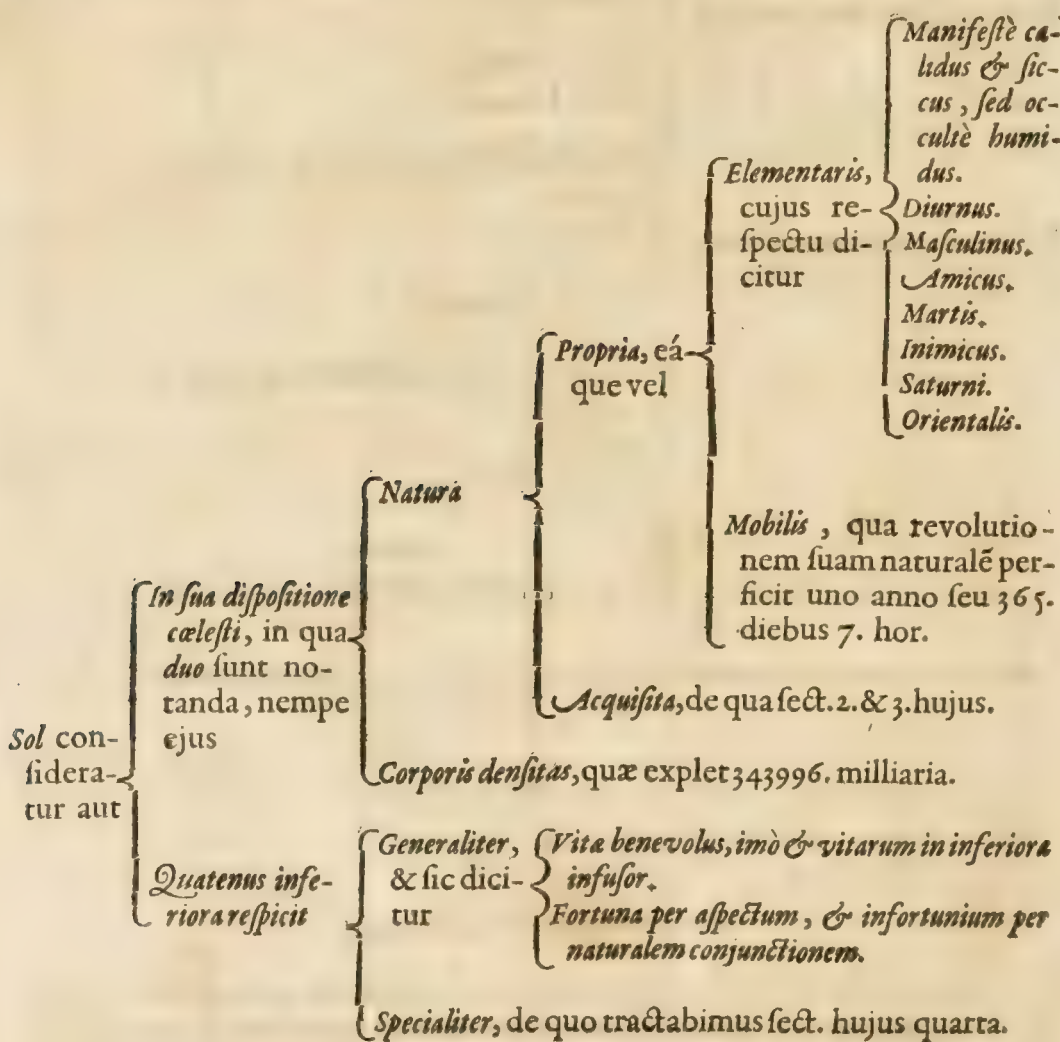 Sol con-
ſidera-
tur aut
In ſua diſpoſitione
cœleſti, in qua
duo ſunt no-
tanda, nempe
ejus
Natura
Propria, eá-
que vel
Elementaris,
cujus re-
ſpectu di-
citur
Manifeſtè ca-
lidus & ſic-
cus, ſed oc-
cultè humi-
dus.
Diurnus.
Maſculinus.
Amicus.
Martis.
Inimicus.
Saturni.
Orientalis.
Mobilis, qua revolutio-
nem ſuam naturalẽ per-
ficit uno anno ſeu 365.
diebus 7. hor.
Acquiſita, de qua ſect. 2. & 3. hujus.
Corporis denſitas, quæ explet 343996. milliaria.
Quatenus infe-
riora reſpicit
Generaliter,
& ſic dici-
tur
Vitæ benevolus, imò & vitarum in inferiora
infuſor.
Fortuna per aſpectum, & infortunium per
naturalem conjunctionem.
Specialiter, de quo tractabimus ſect. hujus quarta.